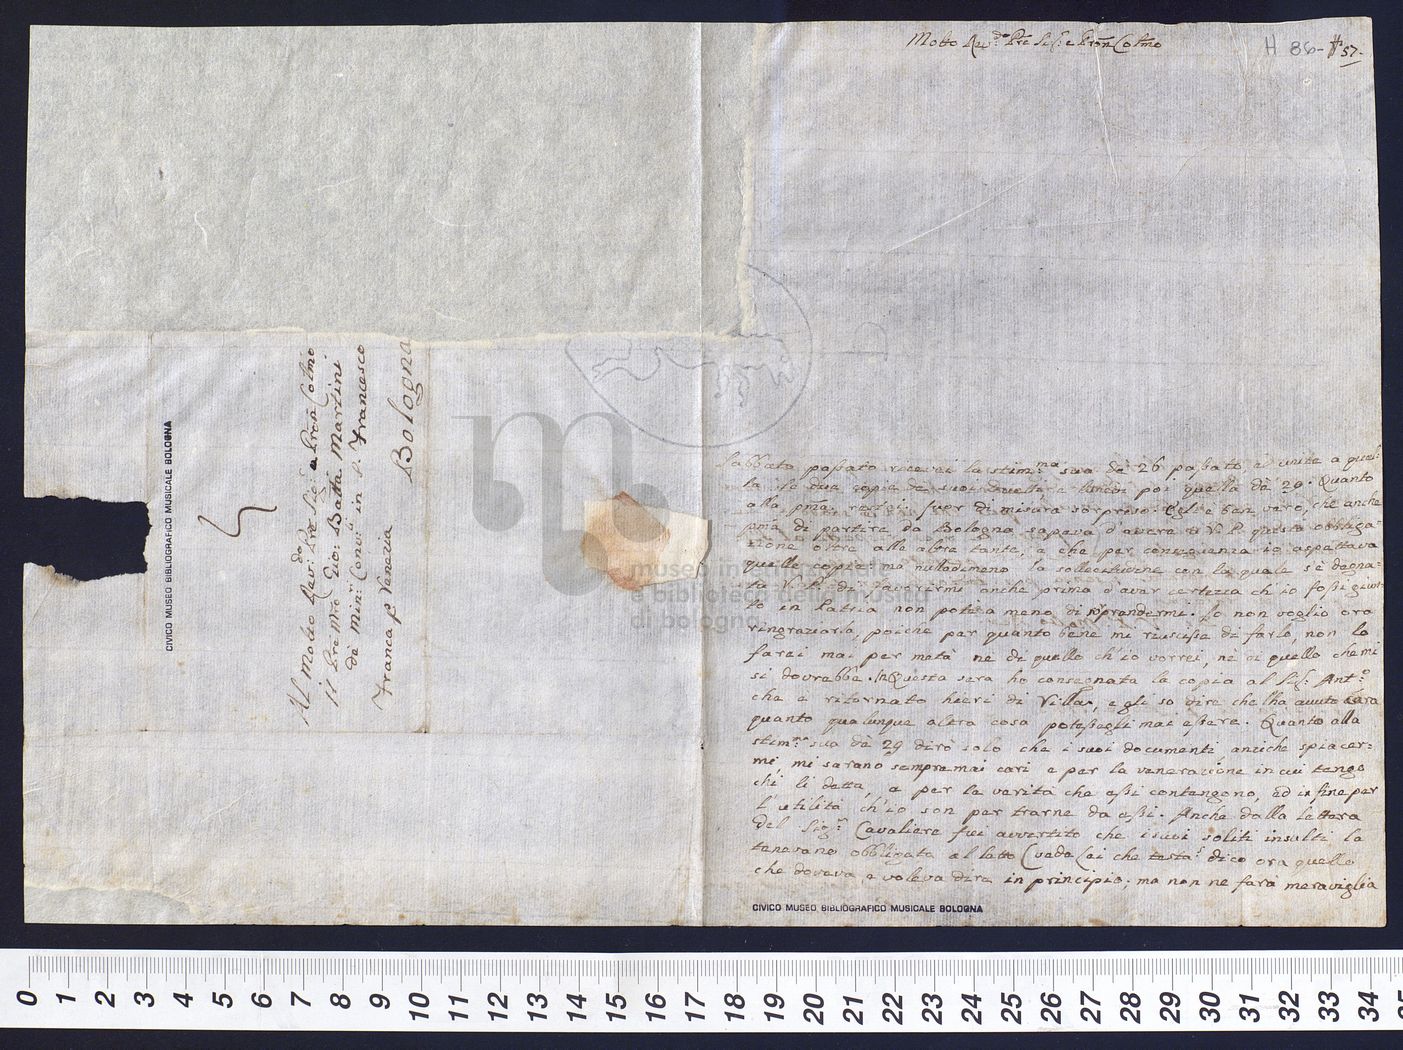 Al Molto Rev:do Pre Sig:e Pron Colmo
Il Pre Mro Gio: Batta Martini
de Min: Conv:li in S. Francesco
Franca p Venezia
Bologna
CIVICO MUSEO BIBLIOGRAFICO MUSICALE BOLOGNA
Molto Rev:do Pre Sig: e Pron Colmo
H 86-
57.
Sabbato passato ricevei la stim:ma sua de 26 passato, e unite a quel:
la le due copie de suoi duetti e lunedi poi quella dè 29. Quanto
alla pma restai fuor di misura sorpreso. Egli è ben vero, che anche
pma di partire da Bologna sapeva d'avere a V. P. questa obbliga-
zione oltre alle altre tante, e che per conseguenza io aspettava
quelle copie; ma nulladimeno la sollecitudine con la quale s'è degna-
ta V. P. di favorirmi anche prima d'aver certezza ch'io fossi giun-
to in Patria non poteva meno di soprendermi. Io non voglio ora
ringraziarla, poiche per quanto bene mi riuscisse di farlo, non lo
farei mai per metà nè di quello ch'io vorrei, nè di quello che mi
si dovrebbe. In questa sera ho consegnata la copia al Sig: Ant:o
che è ritornato hieri di Villa, e gli so dire che l'ha avuto cara
quanto qualunque altra cosa potessegli mai essere. Quanto alla
stim:ma sua dè 29 dirò solo che i suoi documenti anziche spiacer=
mi, mi sarano sempremai cari e per la venerazione in cui tengo
chi li detta, e per la verità che essi contengono, ed in fine per
l'utilità ch'io son per trarne da essi. Anche dalla lettera
del Sig:r Cavaliere fui avvertito che i suoi soliti insulti la
tenevano obbligata al letto
dico ora quello
che doveva, e voleva dire in principio; ma non ne farà meraviglia
CIVICO MUSEO BIBLIOGRAFICO MUSICALE BOLOGNA
museo internazionale
e biblioteca della musica
di bologna
0 1 2 3 4 5 6 7 8 9 10 11 12 13 14 15 16 17 18 19 20 21 22 23 24 25 26 27 28 29 30 31 32 33 34 35